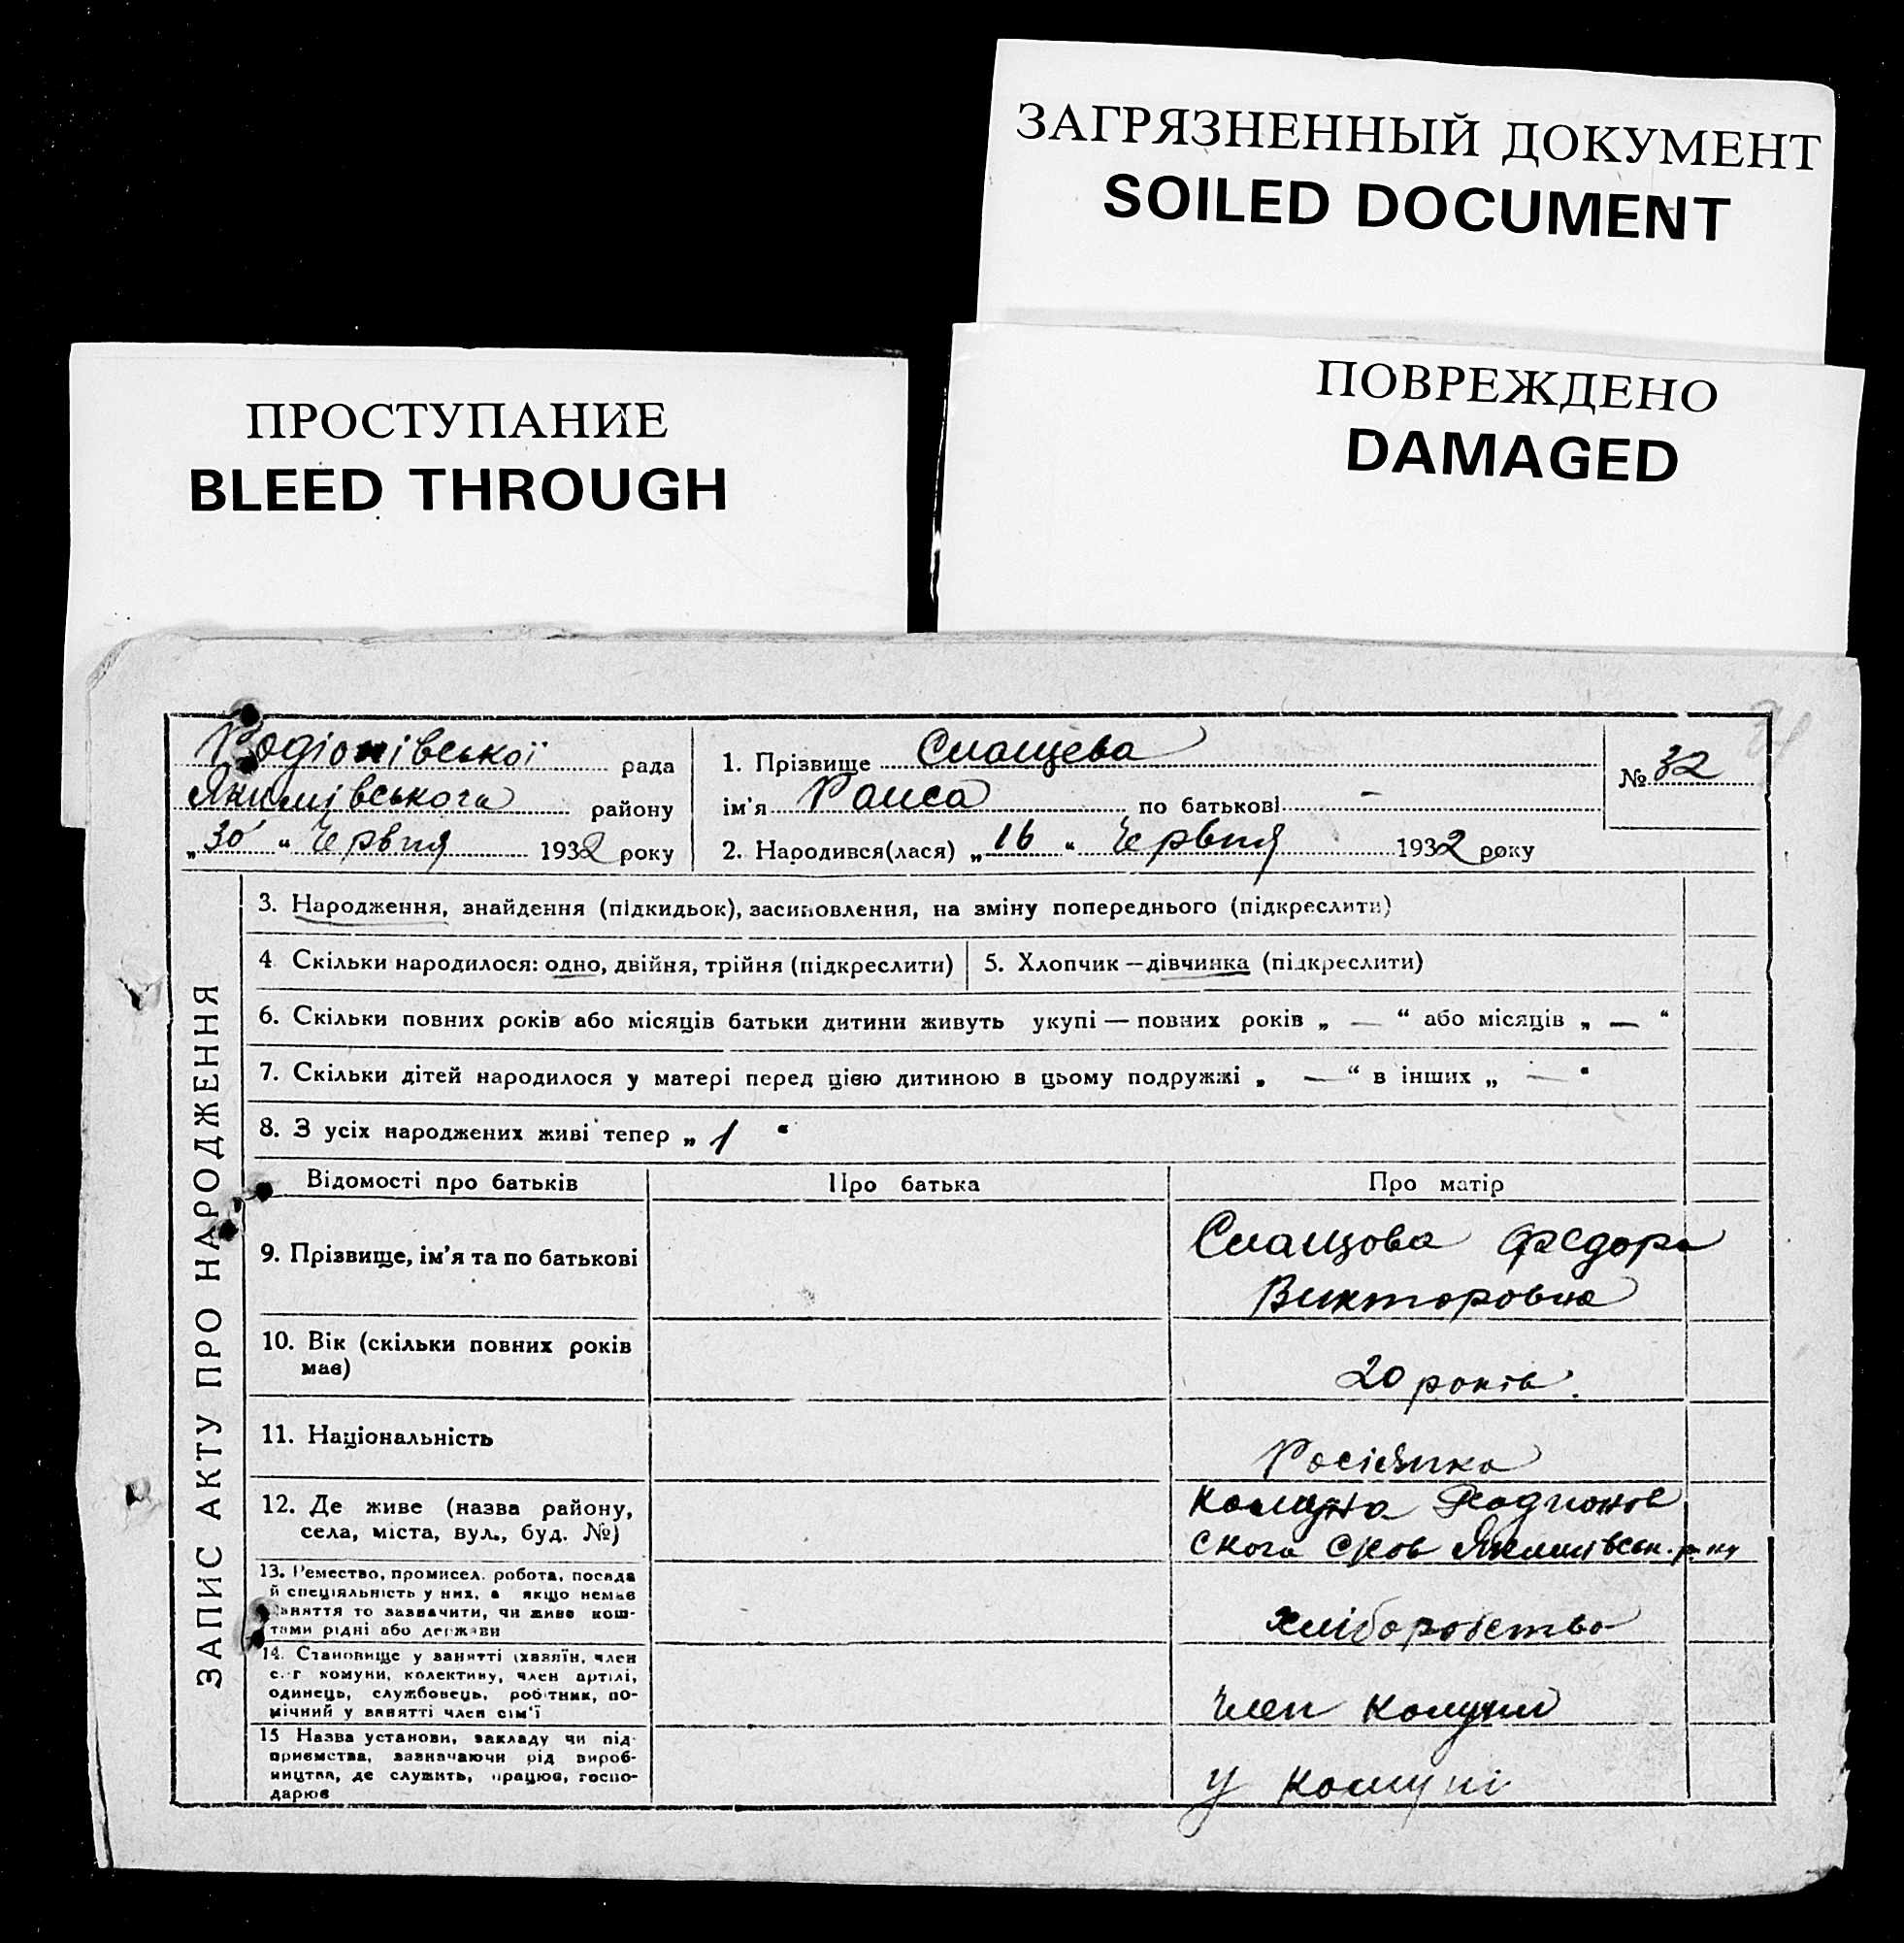 ЗАГРЯЗНЕННЫЙ ДОКУМЕНТ
SOILED DOCUMENT
ПОВРЕЖДЕНО
DAMAGED
ПРОСТУПАНИЕ
BLEED THROUGH
Родіонівської рада
Якимівського району
„30“ Червня 1932 року
1. Прізвище Слащева
ім'я Раиса по батькові —
2. Народився(лася) „16“ Червня 1932 року
№ 32
ЗАПИС АКТУ ПРО НАРОДЖЕННЯ
3. Народження, знайдення (підкидьок), засиновлення, на зміну попереднього (підкреслити)
4 Скільки народилося: одно, двійня, трійня (підкреслити)
5. Хлопчик — дівчинка (підкреслити)
6. Скільки повних років або місяців батьки дитини живуть укупі — повних років „ — “ або місяців „ — “
7. Скільки дітей народилося у матері перед цією дитиною в цьому подружжі „ — “ в інших „ — “
8. З усіх народжених живі тепер „ 1 “
Відомості про батьків Про батька Про матір
9. Прізвище, ім'я та по батькові
Слащова Федора
Викторовна
10. Вік (скільки повних років
має)
20 років.
11. Національність
Росіянка
12. Де живе (назва району,
села, міста, вул., буд. №)
Комуна
ского Якимівськ. р-ну
13. Ремество, промисел, робота, посада
й спеціяльність у них, а якщо немає
заняття то зазначити, чи живе кош-
тами рідні або держави
хліборобство
14. Становище у занятті (хазяїн, член
с.-г комуни, колективу, член артілі,
одинець, службовець, робітник, по-
мічний у занятті член сім'ї
Член комуни
15 Назва установи, закладу чи під-
приємства, зазначаючи рід вироб-
ництва, де служить, працює, госпо-
дарює
У комуні